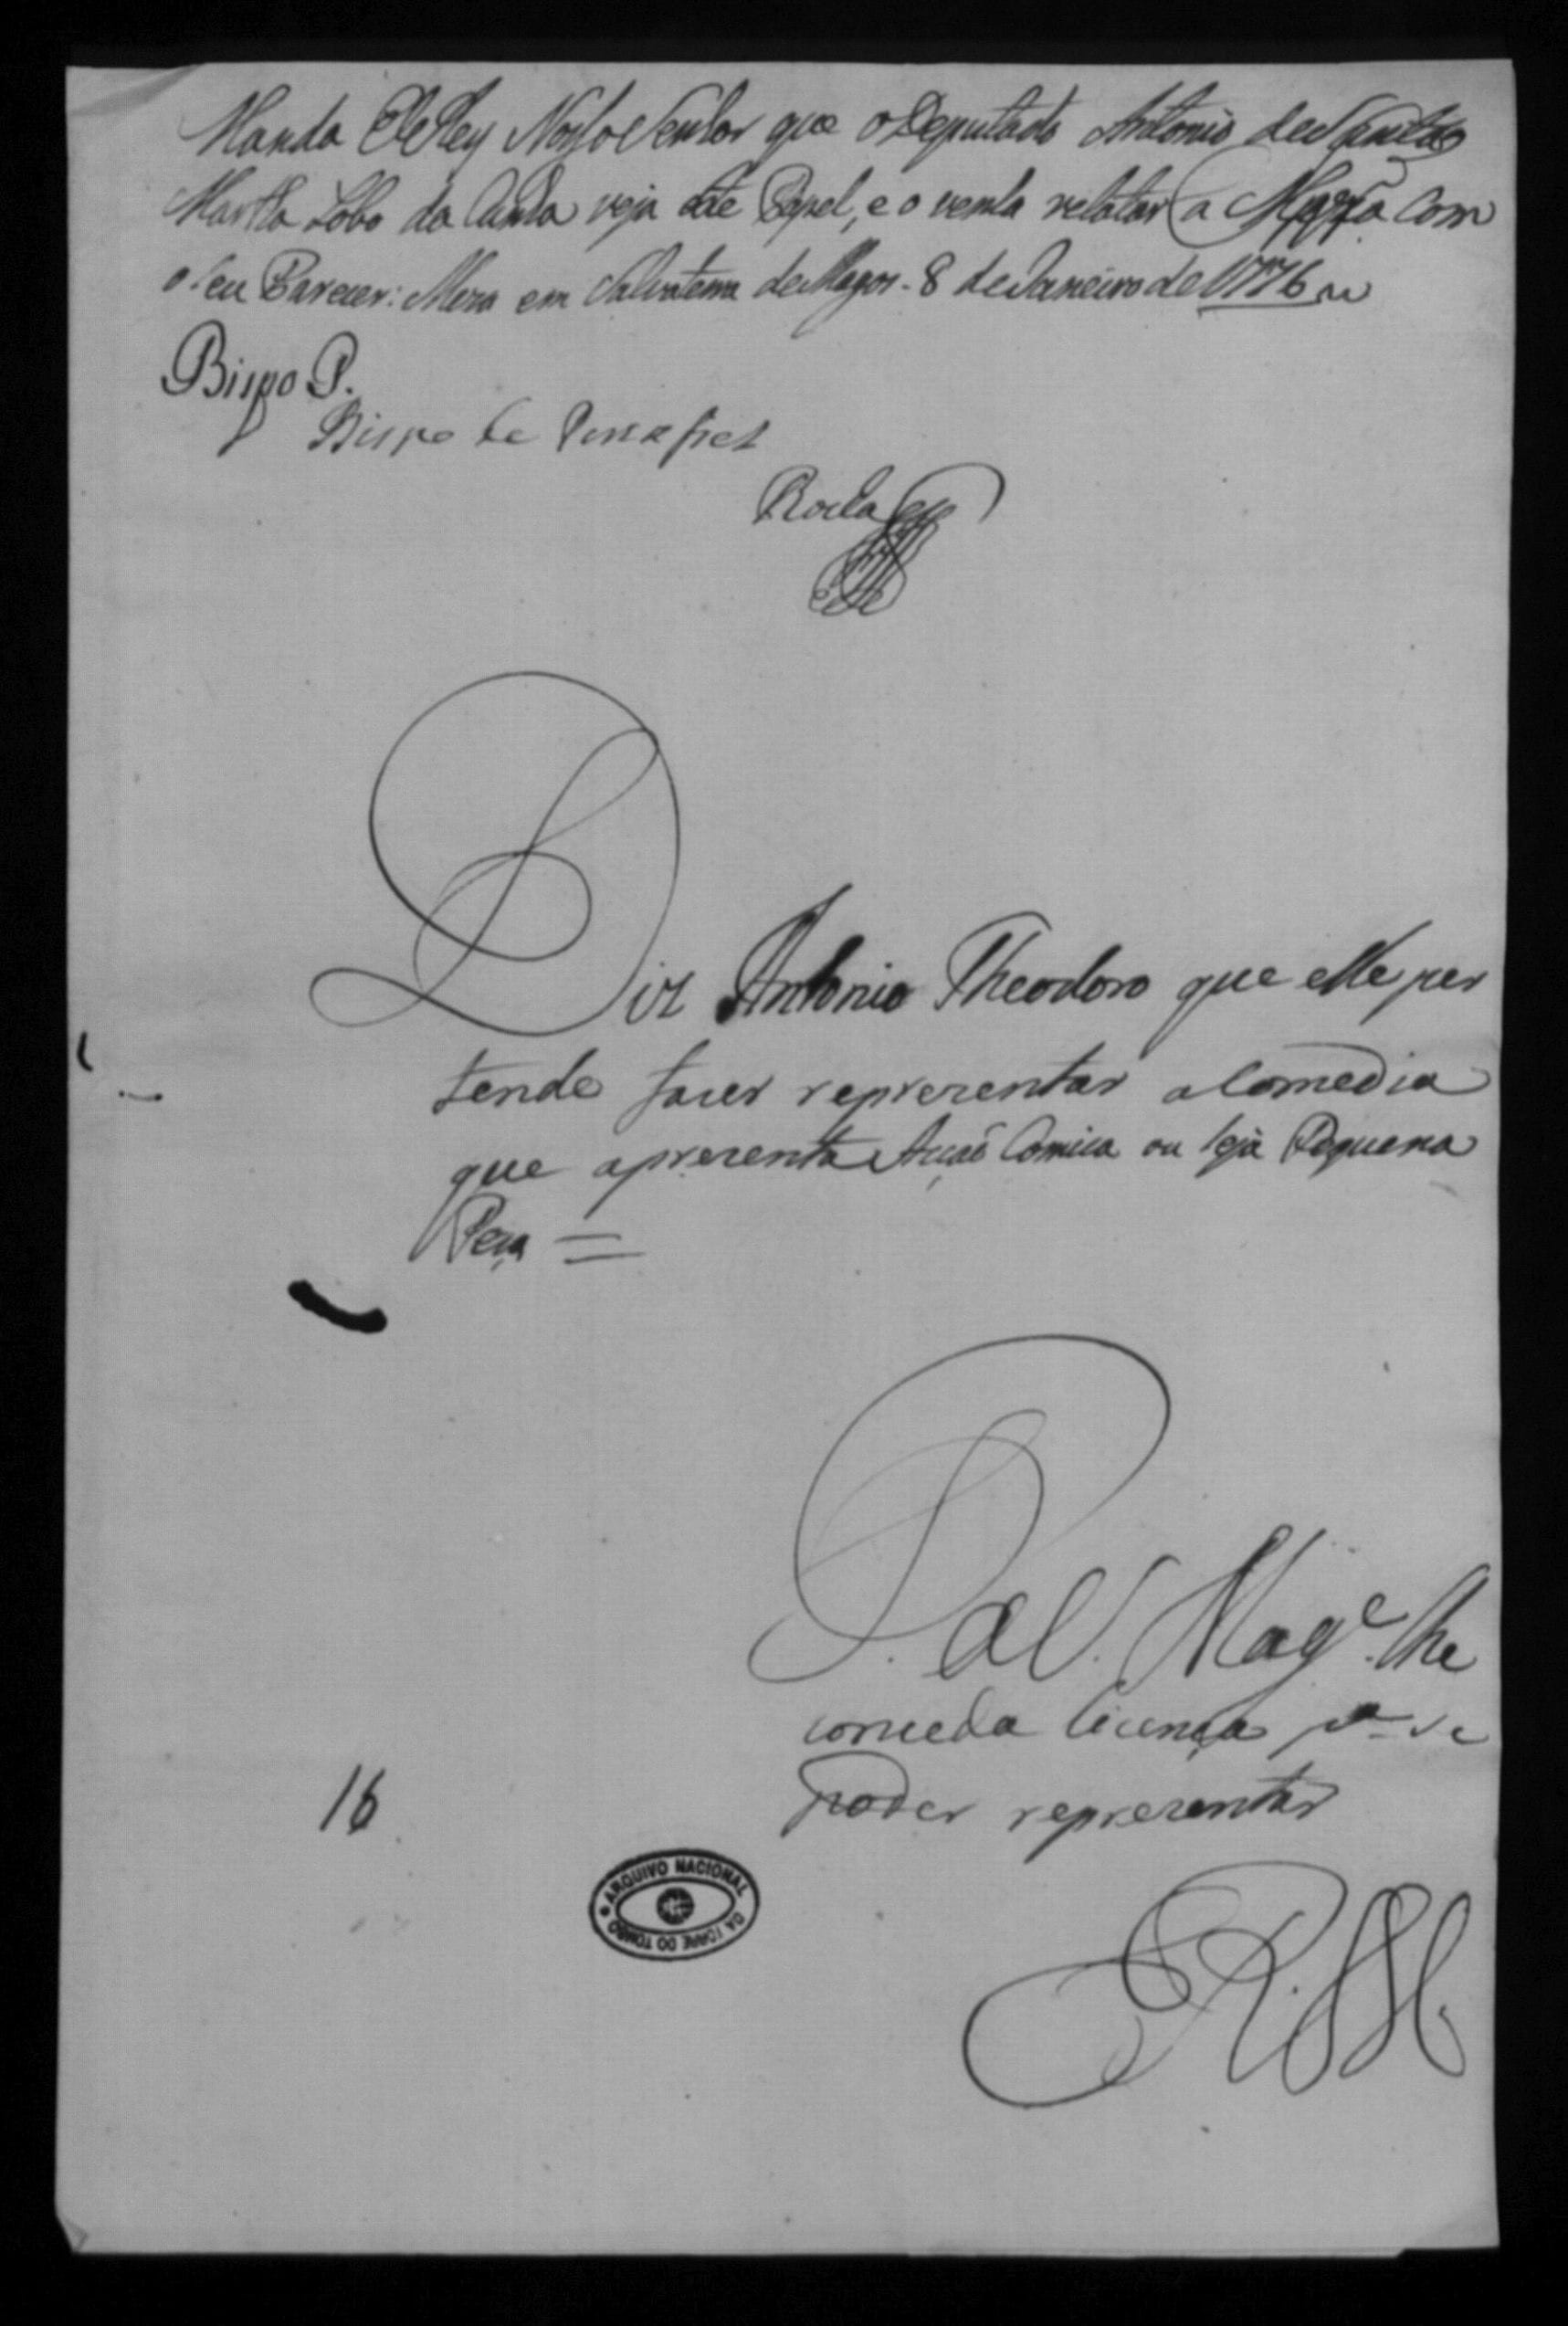 Manda ElRey Nosso Senhor que o Deputado Antonio de Santa
Martha Lobo da Cunha veja este Papel, e o venha relatar a Meza com
o seu Parecer: Meza em Salvaterra de Magos 8 de Janeiro de 1776
Bispo P.
Bispo de Penafiel
Rocha
Diz Antonio Theodoro que elle per
tende fazer reprezentar a Comedia
que aprezenta Acçaõ Comica ou seja Pequena
Peça =
P. a V. Mag.e lhe
conceda licença p.a se
poder reprezentar
16
ARQUIVO NACIONAL DA TORRE DO TOMBO
E R M.